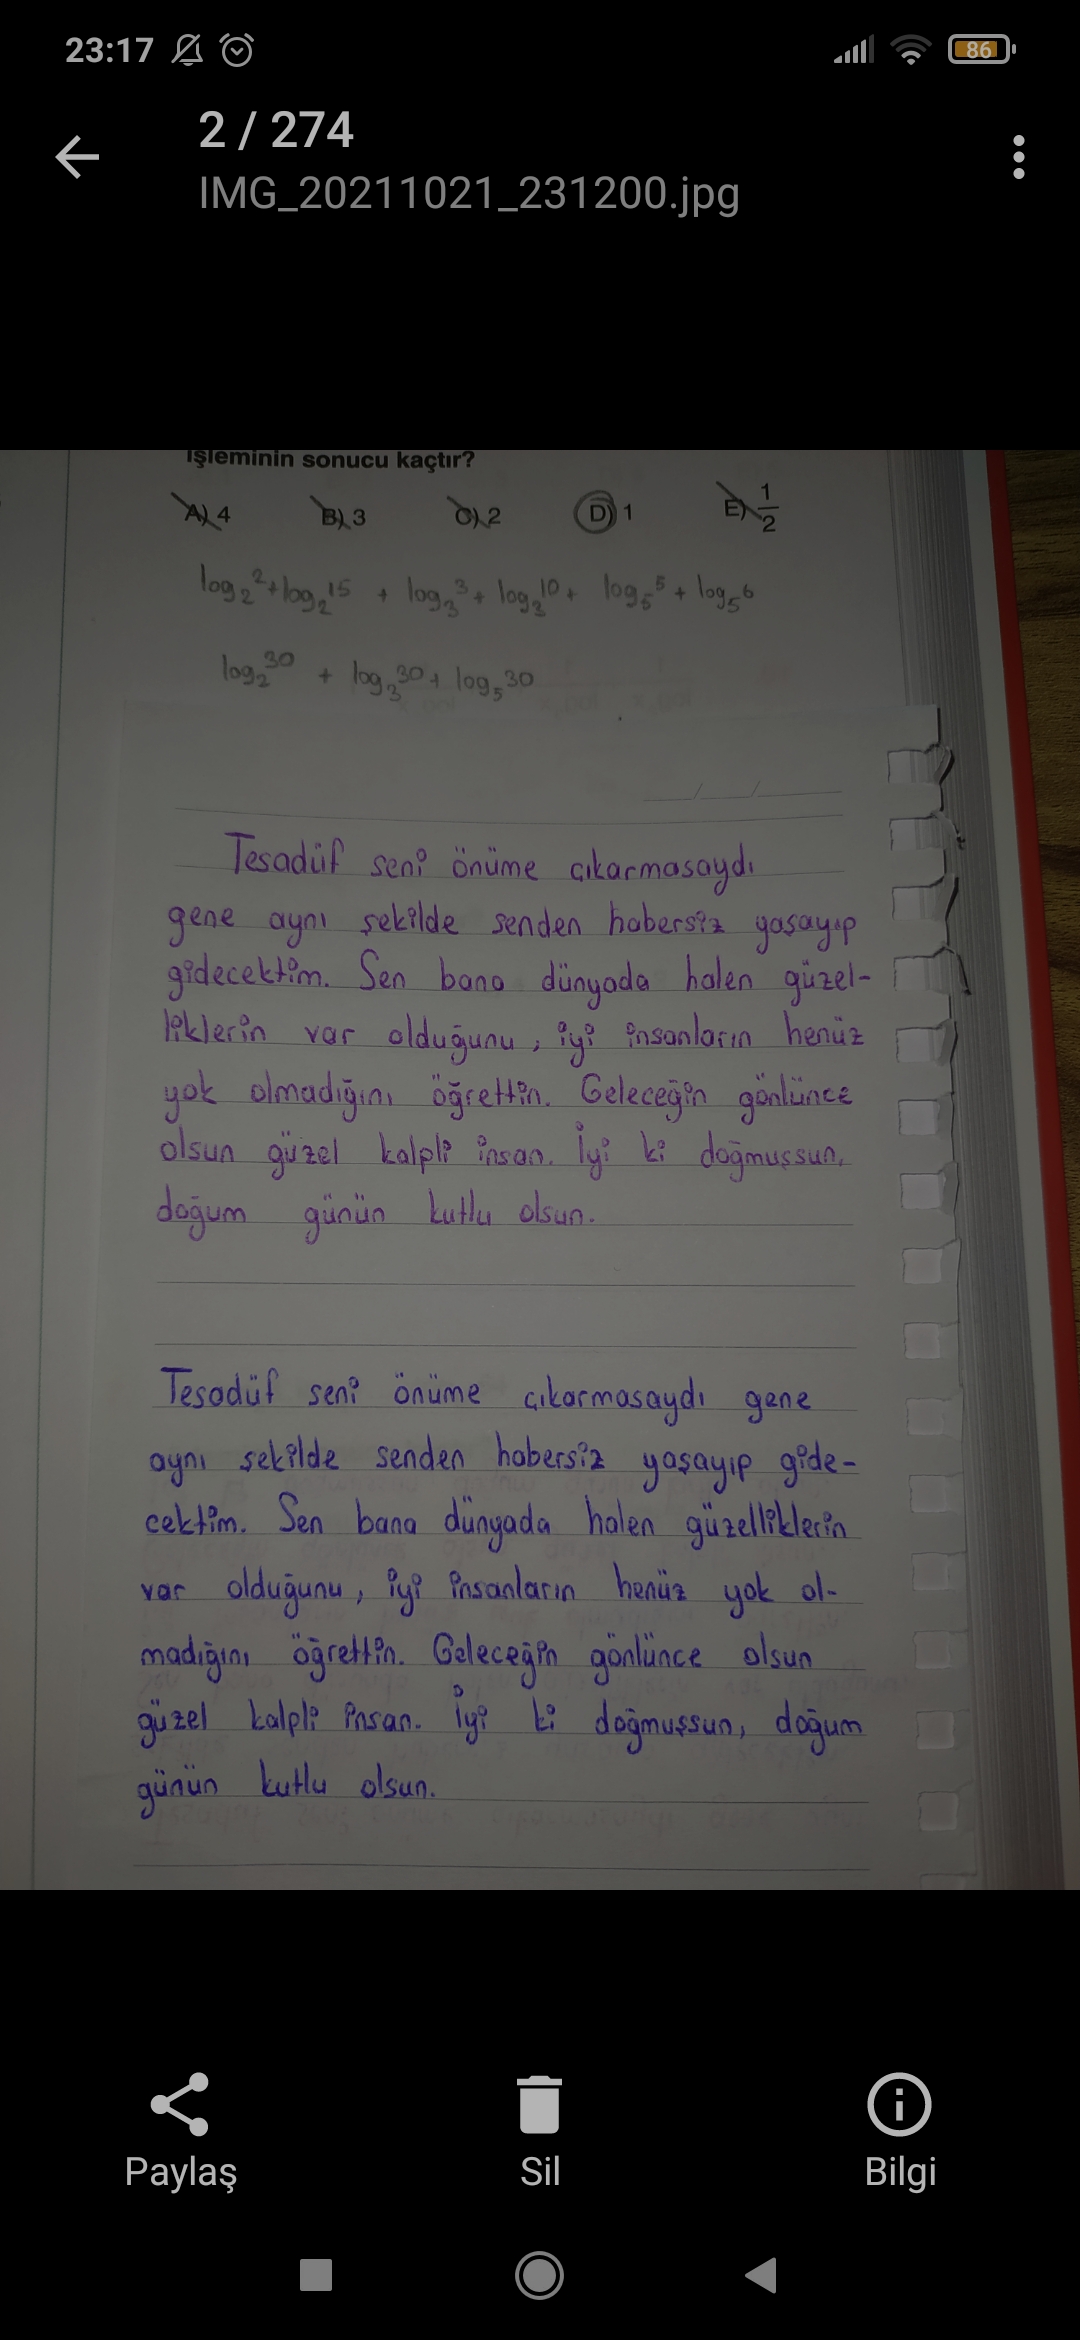 23:17 86
2 / 274
IMG_20211021_231200.jpg
işleminin sonucu kaçtır?
A) 4 B) 3 C) 2 D) 1 E) 1/2
log₂2 + log₂15 + log₃3 + log₃10 + log₅5 + log₅6
log₂30 + log₃30 + log₅30
Tesadüf seni önüme çıkarmasaydı
gene aynı şekilde senden habersiz yaşayıp
gidecektim. Sen bana dünyada halen güzel-
liklerin var olduğunu, iyi insanların henüz
yok olmadığını öğrettin. Geleceğin gönlünce
olsun güzel kalpli insan. İyi ki doğmuşsun,
doğum günün kutlu olsun.
Tesadüf seni önüme çıkarmasaydı gene
aynı şekilde senden habersiz yaşayıp gide-
cektim. Sen bana dünyada halen güzelliklerin
var olduğunu, iyi insanların henüz yok ol-
madığını öğrettin. Geleceğin gönlünce olsun
güzel kalpli insan. İyi ki doğmuşsun, doğum
günün kutlu olsun.
Paylaş Sil Bilgi